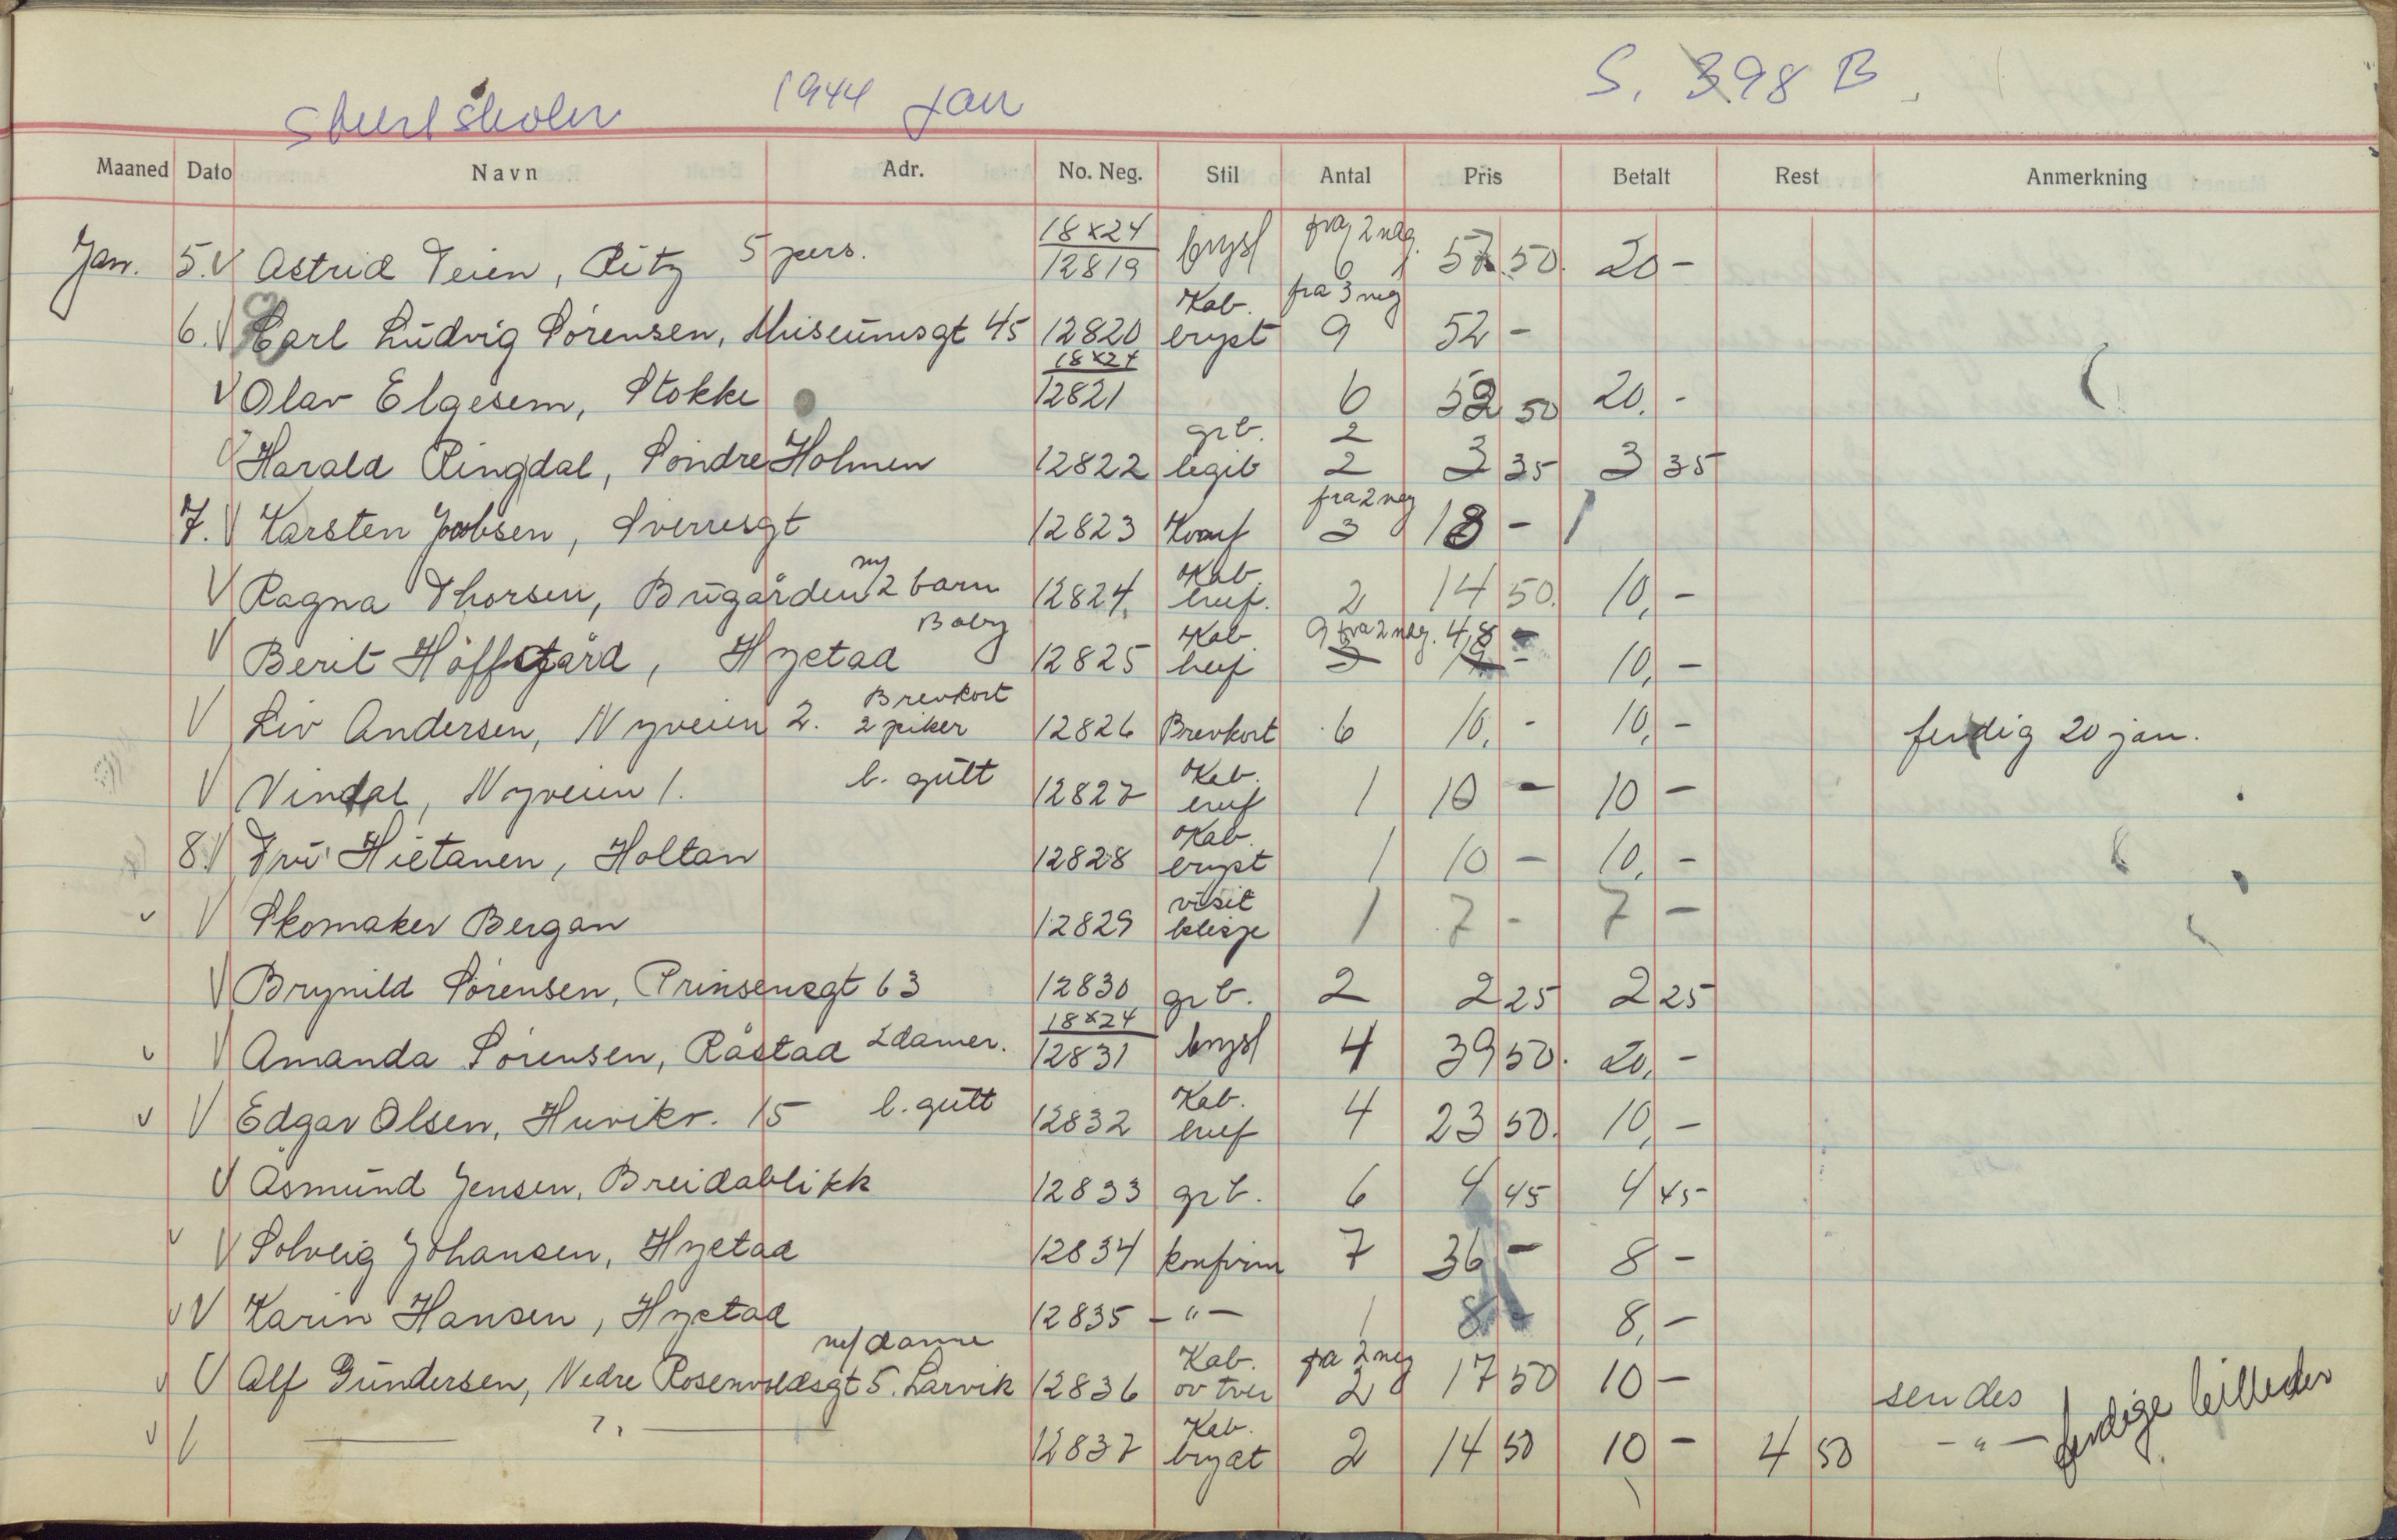 1944 Jan S. 398 B.
Maaned Dato Navn Adr. No. Neg. Stil Antal Pris Betalt Rest Anmerkning
18x24 fra 2 neg.
Jan. 5. V Astrid Teien, Ritz 5 pers. 12819 bryst 6 57 50. 20 -
Kab. fra 3 neg
6. V Carl Ludvig Sørensen, Museumsgt 45 12820 bryst 9 52 -
18x24
V Olav Elgesem, Stokke 12821 6 52 50 20. -
grb. 2
V Harald Ringdal, Søndre Holmen 12822 legit 2 3 35 3 35
fra 2 neg
7. V Karsten Jacobsen, Sverresgt 12823 3 18 -
m/ Kab.
V Ragna Thorsen, Bugården 2 barn 12824. 2 14 50. 10, -
Baby Kab. 9 fra 2 neg. 48 -
V Berit Høffsgård, Hystad 12825 3 10, -
Brevkort
V Liv Andersen, Nyveien 2. 2 piker 12826 Brevkort 6 10, - 10, - ferdig 20 jan.
l. gutt Kab.
V Vindal, Nyveien 1. 12827 1 10 - 10 -
Kab.
8. V Fru Hietanen, Holtan 12828 bryst 1 10 - 10, -
visit
V V Skomaker Bergan 12829 klisje 1 7 - 7 -
V Brynild Sørensen, Prinsensgt 63 12830 grb. 2 2 25 2 25
18x24
V V Amanda Sørensen, Råstad 2 damer. 12831 bryst 4 39 50. 20, -
l. gutt Kab.
V V Edgar Olsen, Huvikv. 15 12832 4 23 50. 10, -
V Åsmund Jensen, Breidablikk 12833 grb. 6 4 45 4 45
V V Solveig Johansen, Hystad 12834 konfirm 7 36 - 8 -
V V Karin Hansen, Hystad 12835 - " - 1 8 - 8, -
m/ dame Kab. fra 2 neg
V V Alf Gundersen, Nedre Rosenvoldsgt 5. Larvik 12836 ov tver 2 17 50 10 - sendes
Kab.
V V — " — 12837 bryst 2 14 50 10 - 4 50 - " - ferdige billeder